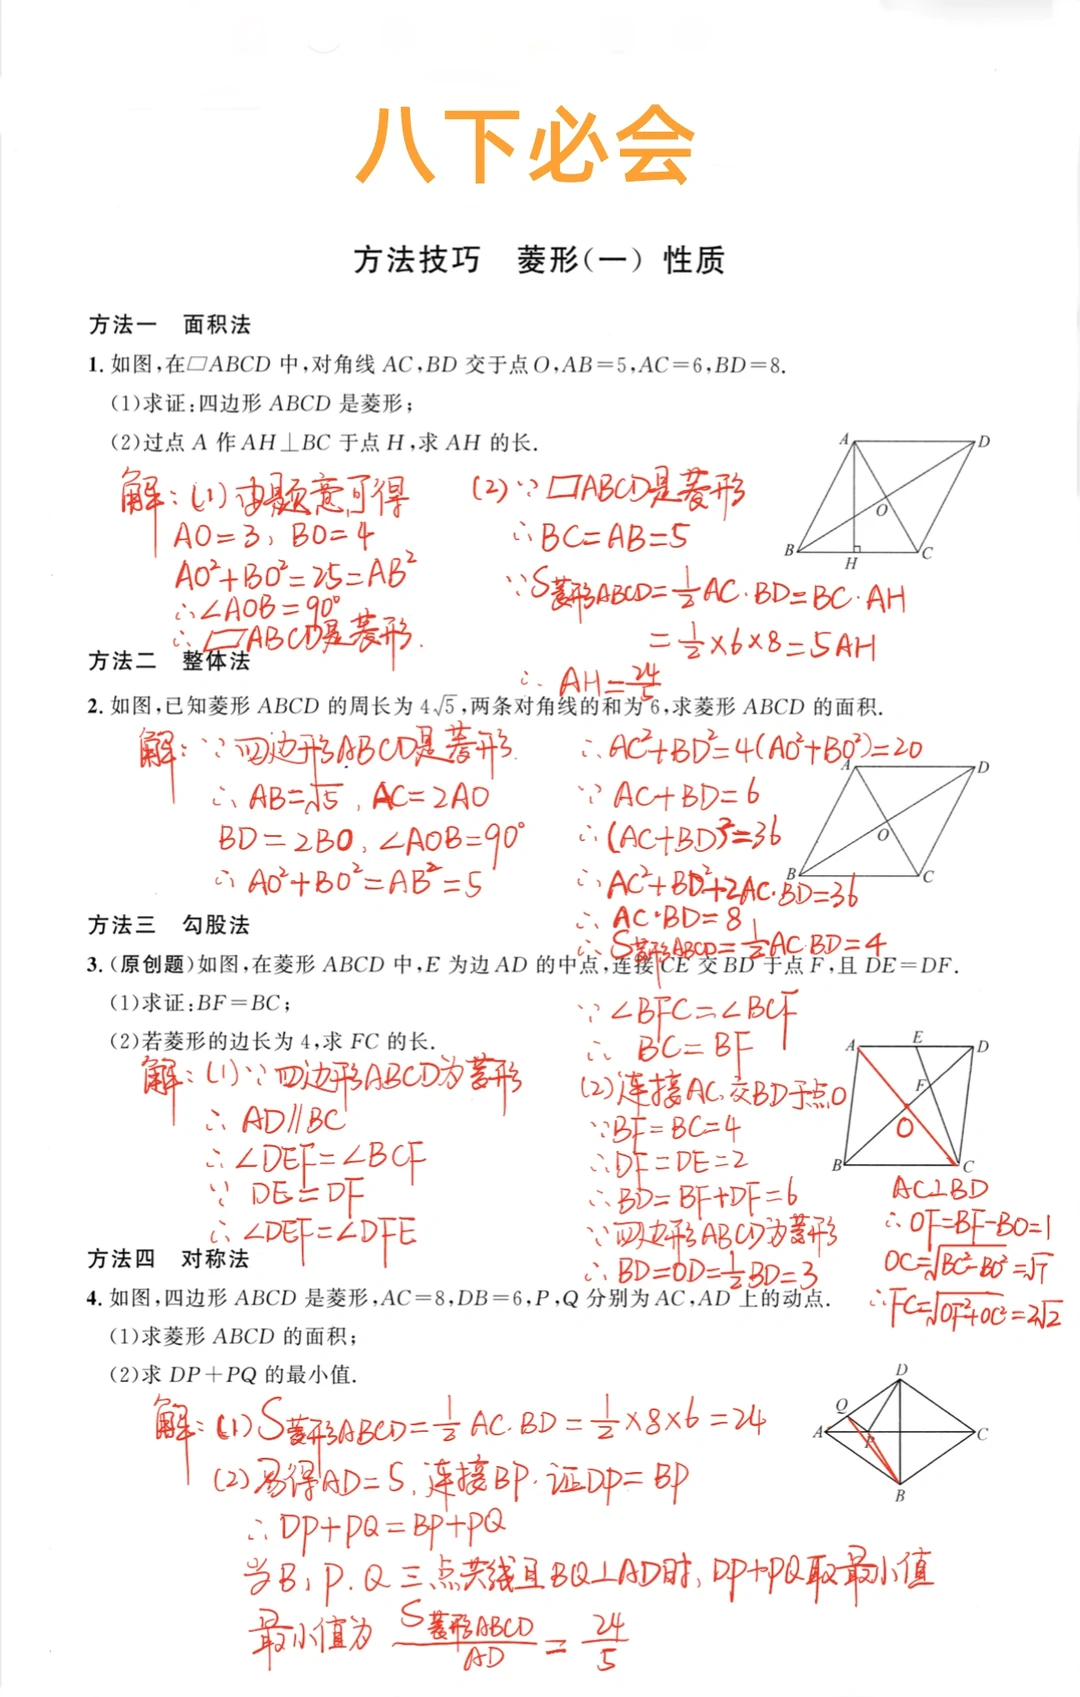 八下必会
方法技巧 菱形(一) 性质
方法一 面积法
1. 如图,在□ABCD 中,对角线 AC,BD 交于点O,AB=5,AC=6,BD=8.
(1)求证:四边形 ABCD 是菱形;
(2)过点 A 作 AH⊥BC 于点 H,求 AH 的长.
A D
O
B H C
解:(1)由题意可得
AO=3, BO=4
AO²+BO²=25=AB²
∴∠AOB=90°
∴□ABCD是菱形.
(2)∵□ABCD是菱形
∴BC=AB=5
∵S菱形ABCD=1/2AC·BD=BC·AH
=1/2×6×8=5AH
∴AH=24/5
方法二 整体法
2. 如图,已知菱形 ABCD 的周长为 4√5,两条对角线的和为 6,求菱形 ABCD 的面积.
解:∵四边形ABCD是菱形.
∴AB=√5, AC=2AO
BD=2BO, ∠AOB=90°
∴AO²+BO²=AB²=5
∴AC²+BD²=4(AO²+BO²)=20
∵AC+BD=6
∴(AC+BD)²=36
∴AC²+BD²+2AC·BD=36
∴AC·BD=8
∴S菱形ABCD=1/2AC·BD=4
A D
O
B C
方法三 勾股法
3. (原创题)如图,在菱形 ABCD 中,E 为边 AD 的中点,连接 CE 交 BD 于点 F,且 DE=DF.
(1)求证:BF=BC;
(2)若菱形的边长为 4,求 FC 的长.
解:(1)∵四边形ABCD为菱形
∴AD∥BC
∴∠DEF=∠BCF
∵DE=DF
∴∠DEF=∠DFE
∵∠BFC=∠BCF
∴BC=BF
(2)连接AC,交BD于点O
∵BF=BC=4
∴DF=DE=2
∴BD=BF+DF=6
∵四边形ABCD为菱形
∴BD=OD=1/2BD=3
A E D
F
O
B C
AC⊥BD
∴OF=BF-BO=1
OC=√BC²-BO²=√7
∴FC=√OF²+OC²=2√2
方法四 对称法
4. 如图,四边形 ABCD 是菱形,AC=8,DB=6,P,Q 分别为 AC,AD 上的动点.
(1)求菱形 ABCD 的面积;
(2)求 DP+PQ 的最小值.
D
Q
A P C
B
解:(1)S菱形ABCD=1/2AC·BD=1/2×8×6=24
(2)易得AD=5, 连接BP. 证DP=BP
∴DP+PQ=BP+PQ
当B,P,Q三点共线且BQ⊥AD时, DP+PQ取最小值
最小值为 S菱形ABCD/AD=24/5